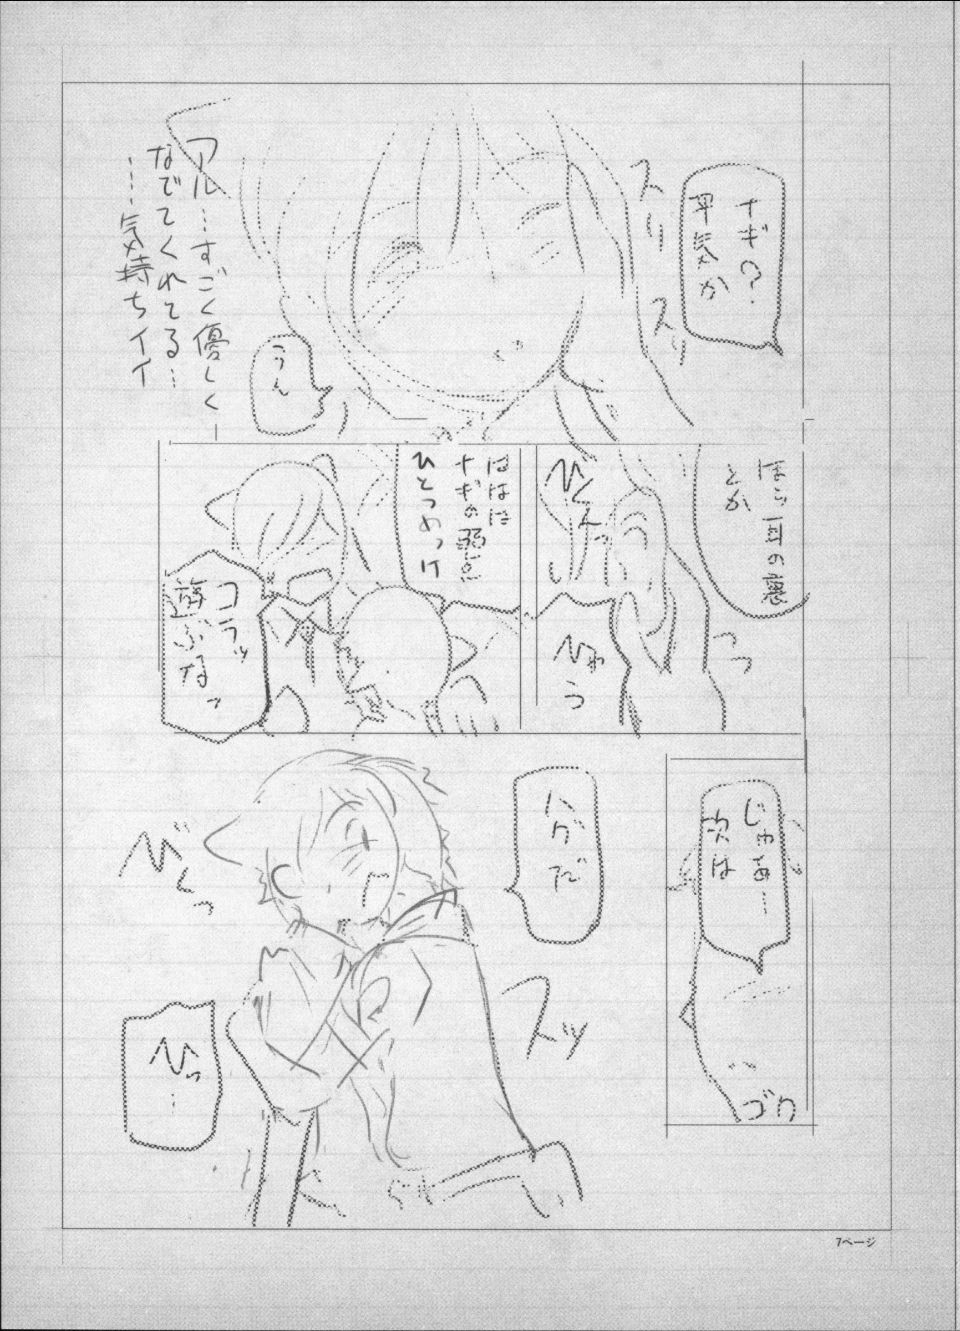 ナギ?
平気か
スリ
スリ
うん
アル…すごく優しく
なでてくれてる…
……気持ちイイ
ほら耳の裏
とか
びくんっ
ひゃう
ははは
ナギの弱点
ひとつめっけ
コラッ
遊ぶなッ
じゃあ…
次は
ゴク
ハグだ
スッ
びくっ
ひっ…
7ページ